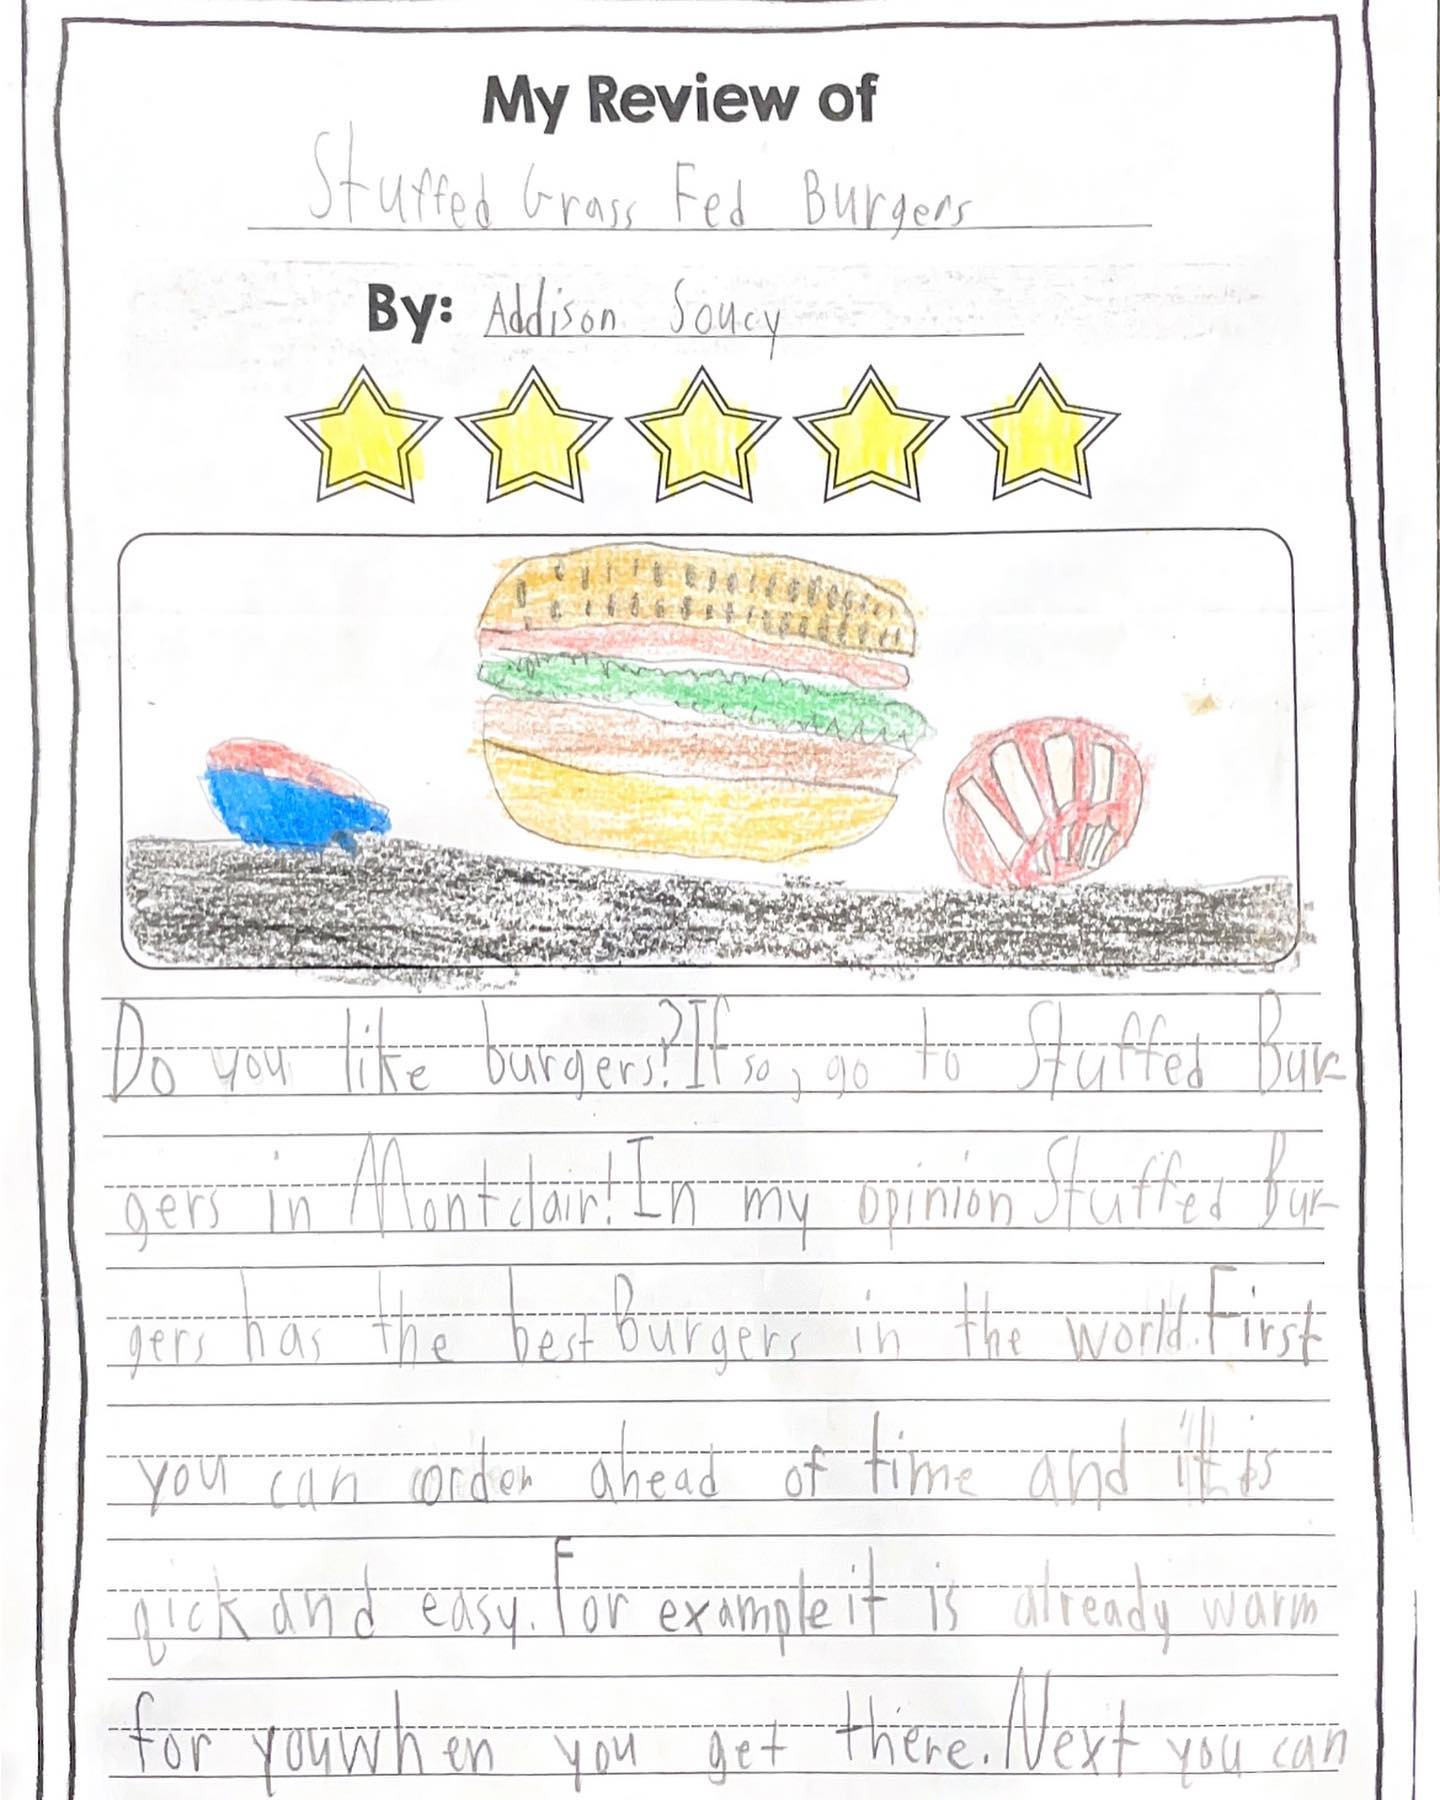 My Review of
Stuffed Grass Fed Burgers
By: Addison Soucy
Do you like burgers? If so, go to Stuffed Bur-
gers in Montclair! In my opinion Stuffed Bur-
gers has the best Burgers in the world. First
you can order ahead of time and it is
qick and easy. For example it is already warm
for you when you get there. Next you can